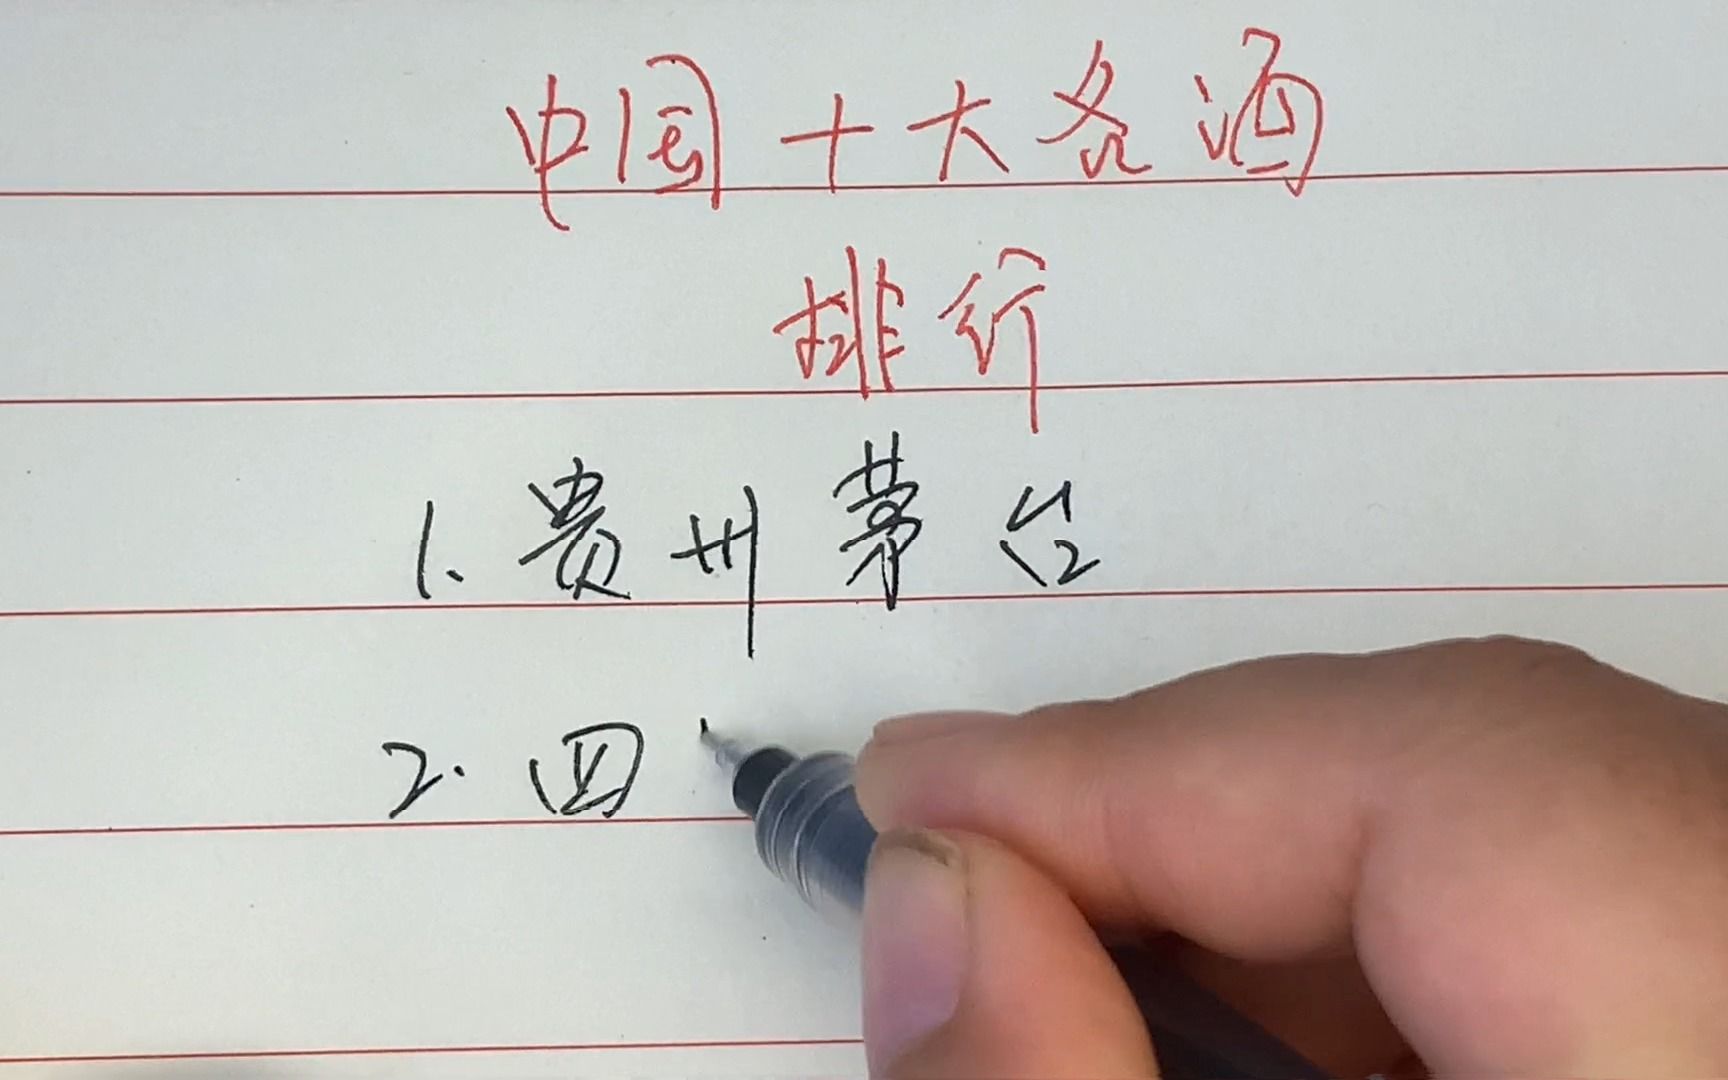 中国十大名酒
排行
1.贵州茅台
2.四